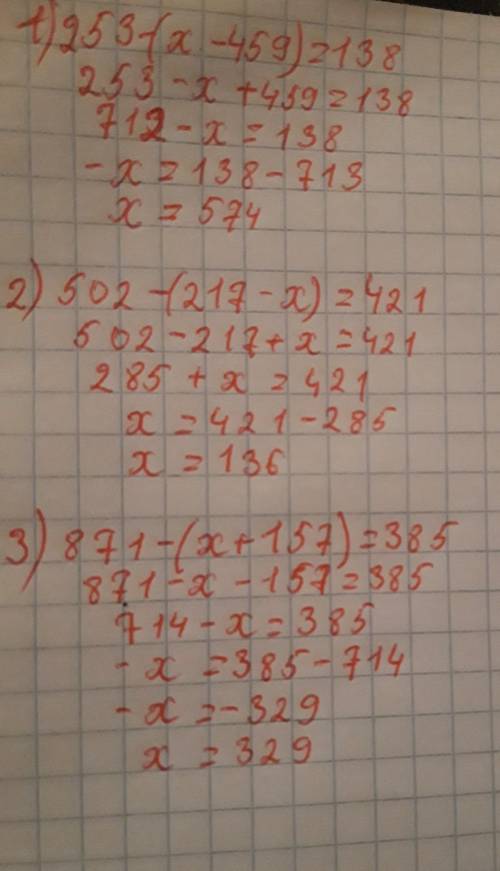 1) 253-(x-459)=138
253-x+459=138
712-x=138
-x=138-713
x=574
2) 502-(217-x)=421
502-217+x=421
285+x=421
x=421-285
x=136
3) 871-(x+157)=385
871-x-157=385
714-x=385
-x=385-714
-x=-329
x=329